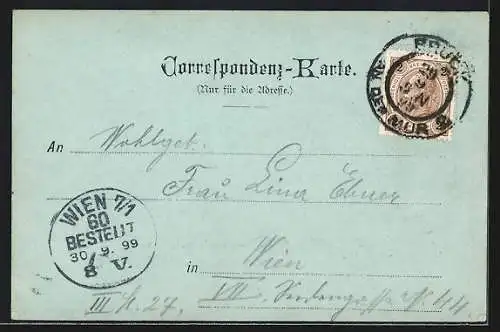 Correspondenz-Karte.
(Nur für die Adresse.)
BRUCK
AN DER MUR
An Wohlgeb.
Frau Lina Ebner
WIEN 7/1
60
BESTELLT
30.9.99
8 V.
in Wien
III
27, VII. No 44